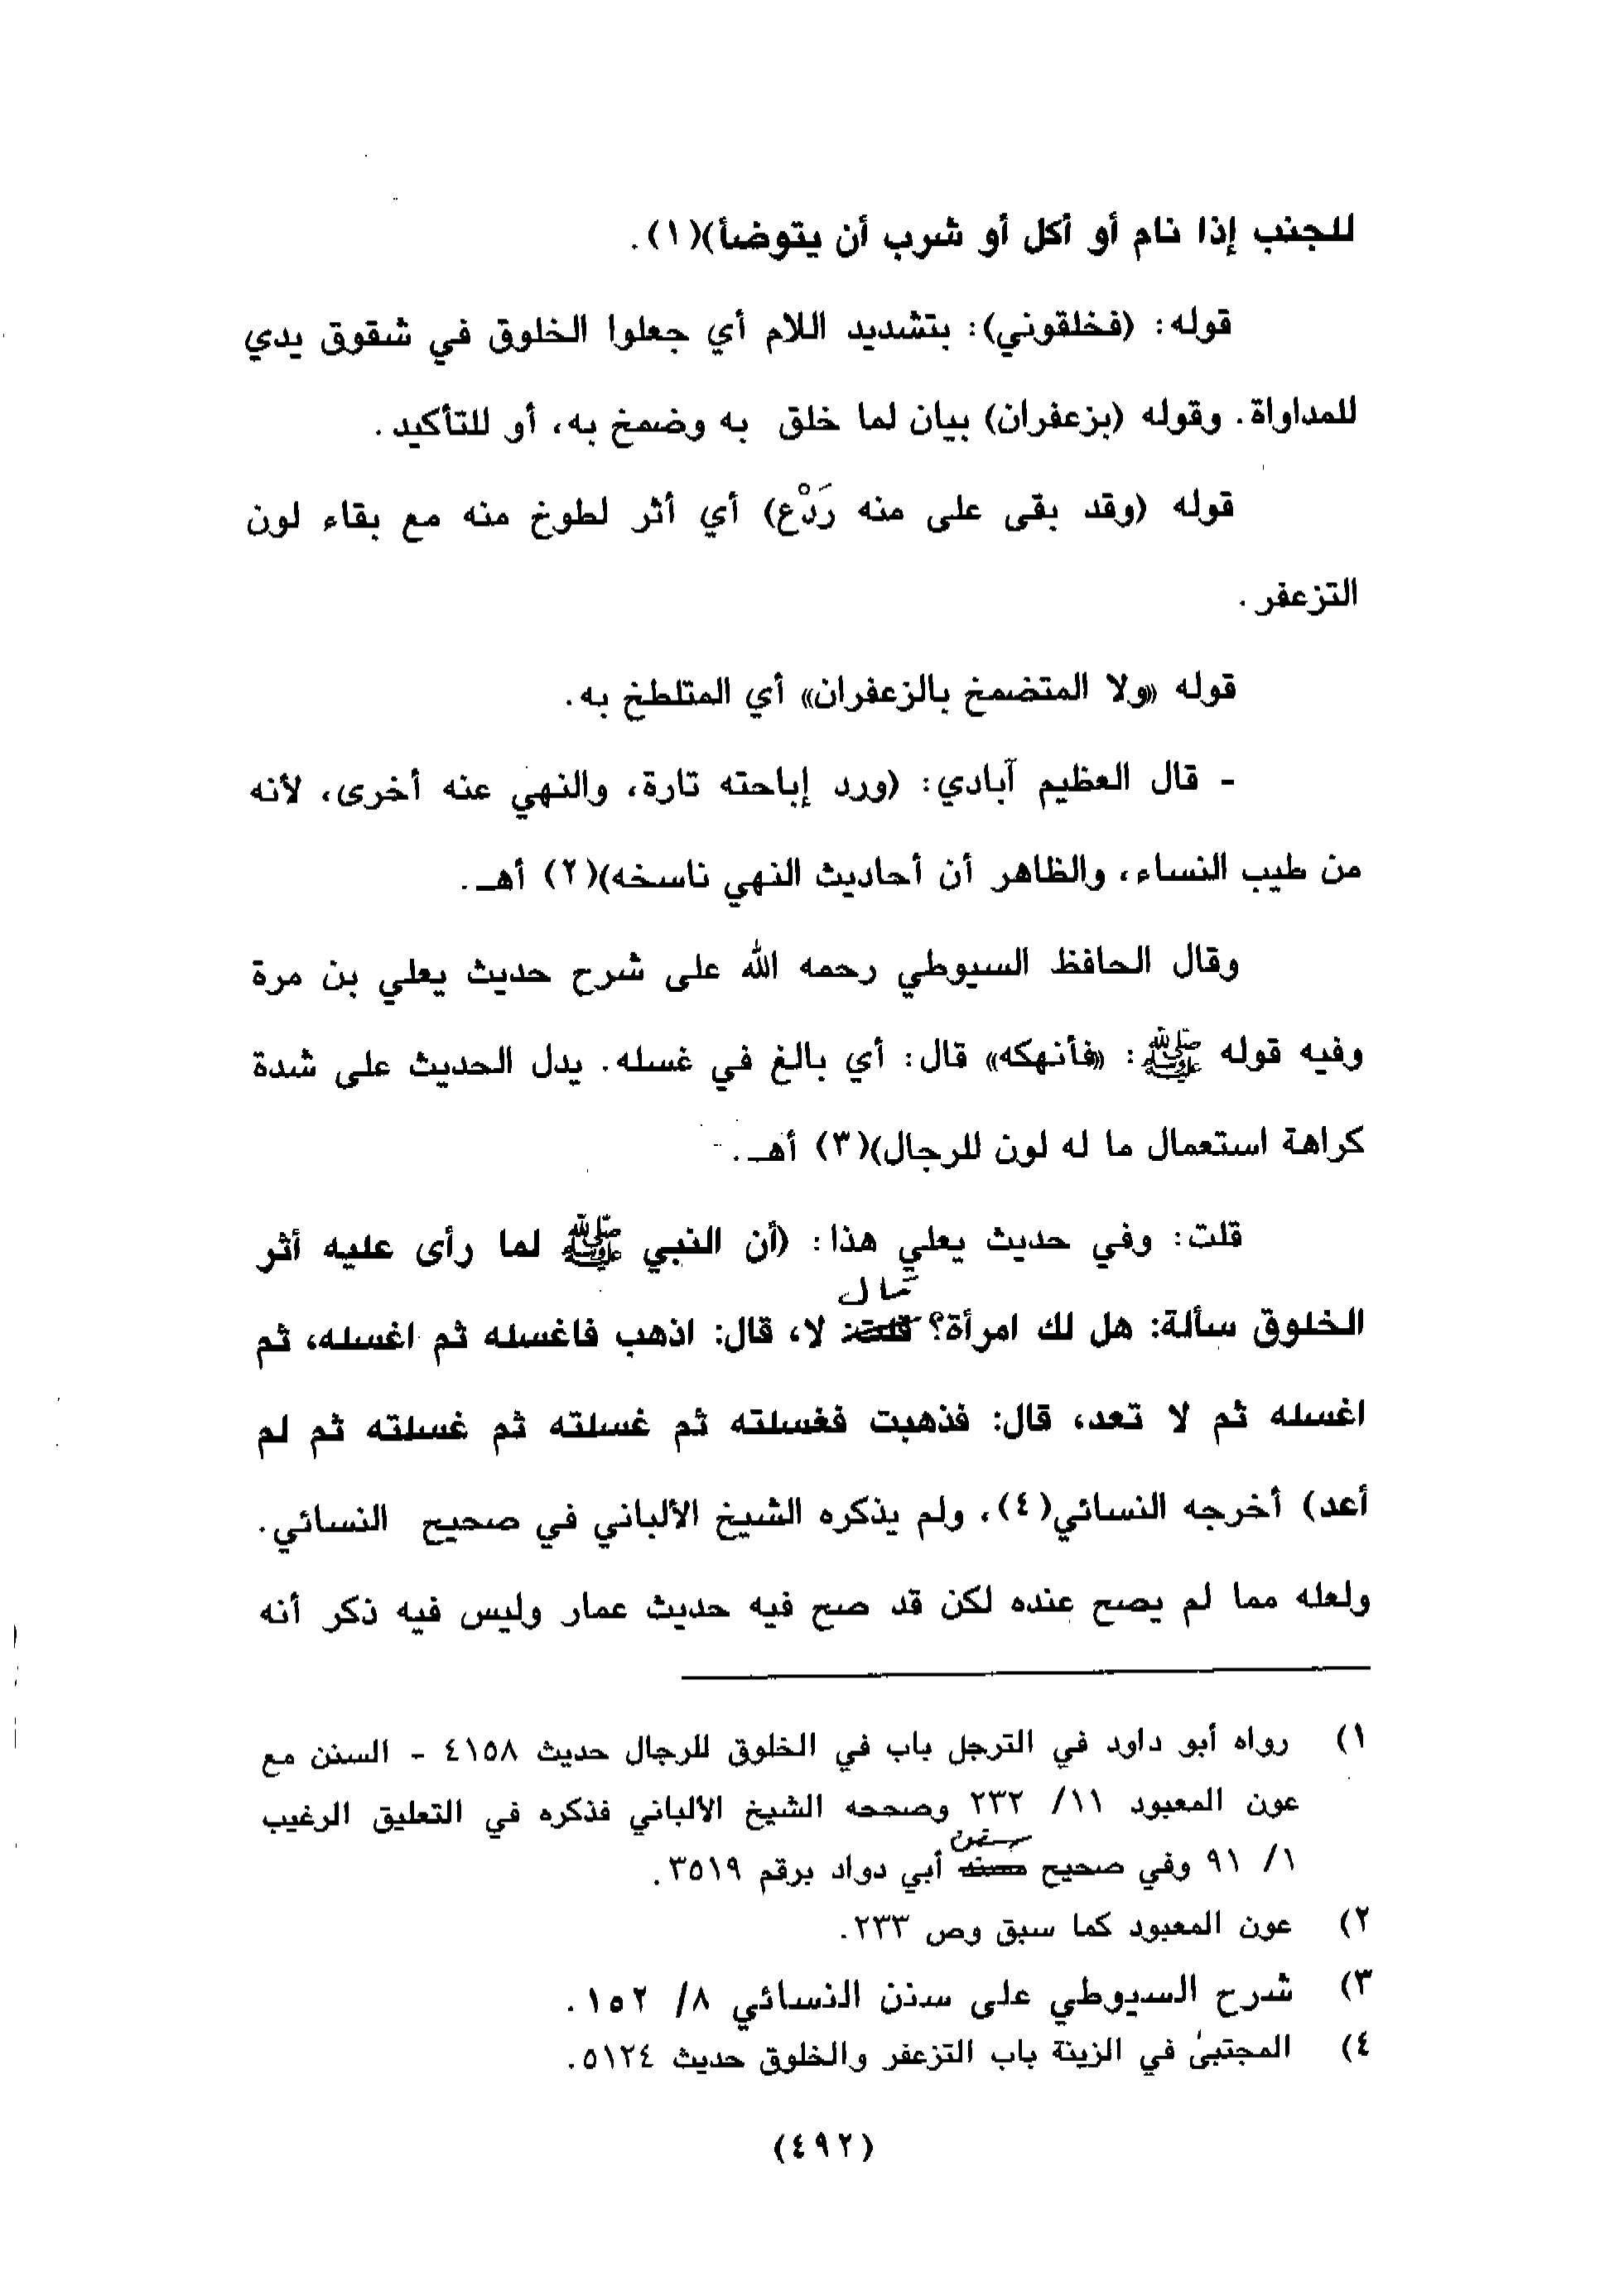 للجنب إذا نام أو أكل أو شرب أن يتوضأ)(١).
قوله: (فخلقوني): بتشديد اللام أي جعلوا الخلوق في شقوق يدي
للمداواة. وقوله (بزعفران) بيان لما خلق به وضمخ به، أو للتأكيد.
قوله (وقد بقى على منه رَدْع) أي أثر لطوخ منه مع بقاء لون
التزعفر.
قوله «ولا المتضمخ بالزعفران» أي المتلطخ به.
- قال العظيم آبادي: (ورد إباحته تارة، والنهي عنه أخرى، لأنه
من طيب النساء، والظاهر أن أحاديث النهي ناسخه)(٢) أهـ.
وقال الحافظ السيوطي رحمه الله على شرح حديث يعلي بن مرة
وفيه قوله ﷺ: «فأنهكه» قال: أي بالغ في غسله. يدل الحديث على شدة
كراهة استعمال ما له لون للرجال)(٣) أهـ.
قلت: وفي حديث يعلي هذا: (أن النبي ﷺ لما رأى عليه أثر
قال
الخلوق سألة: هل لك امرأة؟ قلت: لا، قال: اذهب فاغسله ثم اغسله، ثم
اغسله ثم لا تعد، قال: فذهبت فغسلته ثم غسلته ثم غسلته ثم لم
أعد) أخرجه النسائي(٤)، ولم يذكره الشيخ الألباني في صحيح النسائي.
ولعله مما لم يصح عنده لكن قد صح فيه حديث عمار وليس فيه ذكر أنه
١) رواه أبو داود في الترجل باب في الخلوق للرجال حديث ٤١٥٨ - السنن مع
عون المعبود ١١/ ٢٣٢ وصححه الشيخ الألباني فذكره في التعليق الرغيب
سنن
١/ ٩١ وفي صحيح أبي دواد برقم ٣٥١٩.
٢) عون المعبود كما سبق وص ٢٣٣.
٣) شرح السيوطي على سنن النسائي ٨/ ١٥٢.
٤) المجتبىٰ في الزينة باب التزعفر والخلوق حديث ٥١٢٤.
(٤٩٢)